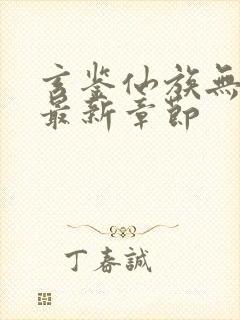 玄鉴仙族無
最新章節
丁春誠